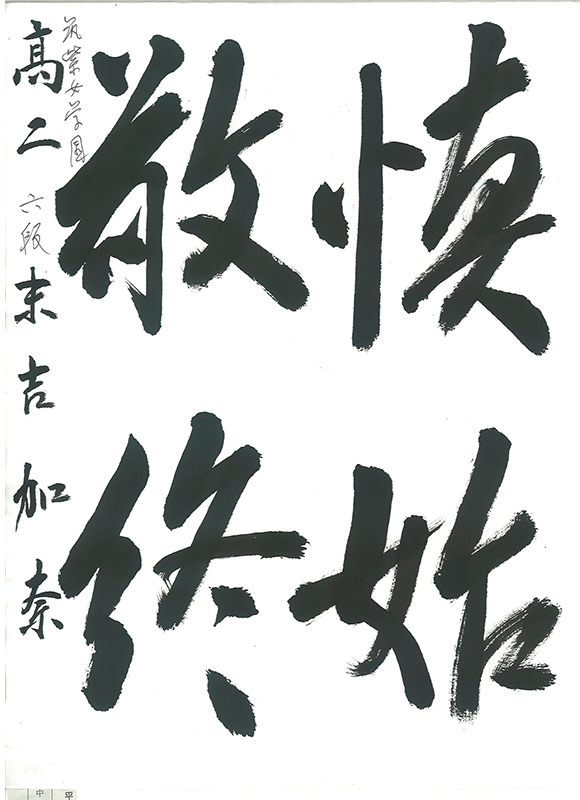 慎始
敬終
筑紫女学園
高二 六段 末吉加奈
中 平